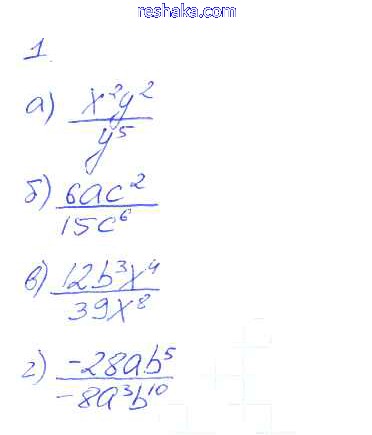 reshaka.com
1.
а) x²y²
y⁵
б) 6ac²
15c⁶
в) 12b³x⁴
39x⁸
г) -28ab⁵
-8a³b¹⁰